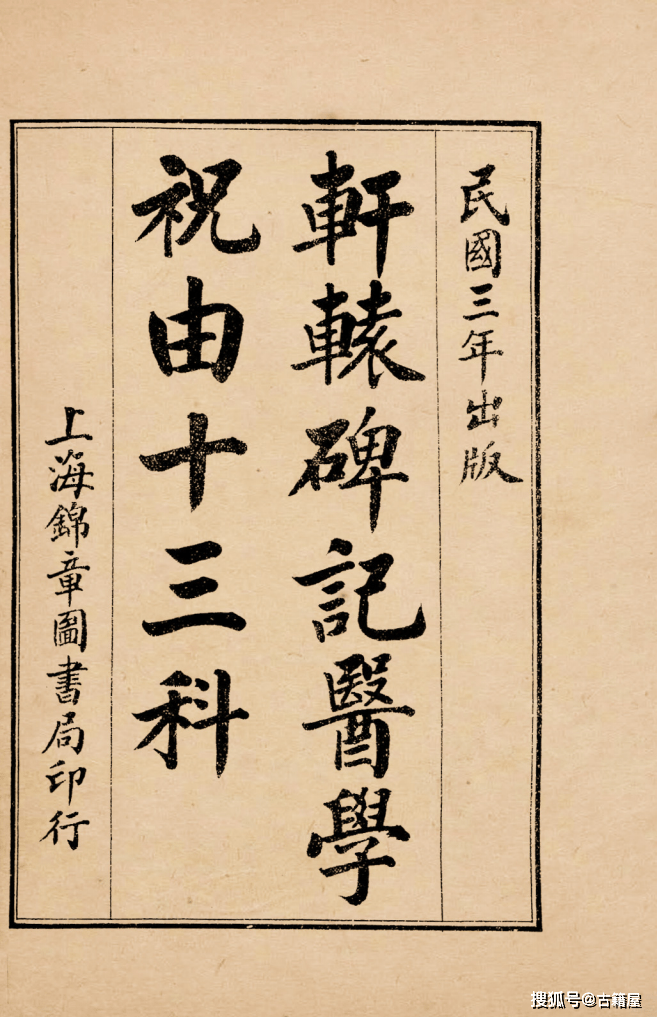 民國三年出版
軒轅碑記醫學
祝由十三科
上海錦章圖書局印行
搜狐号@古籍屋